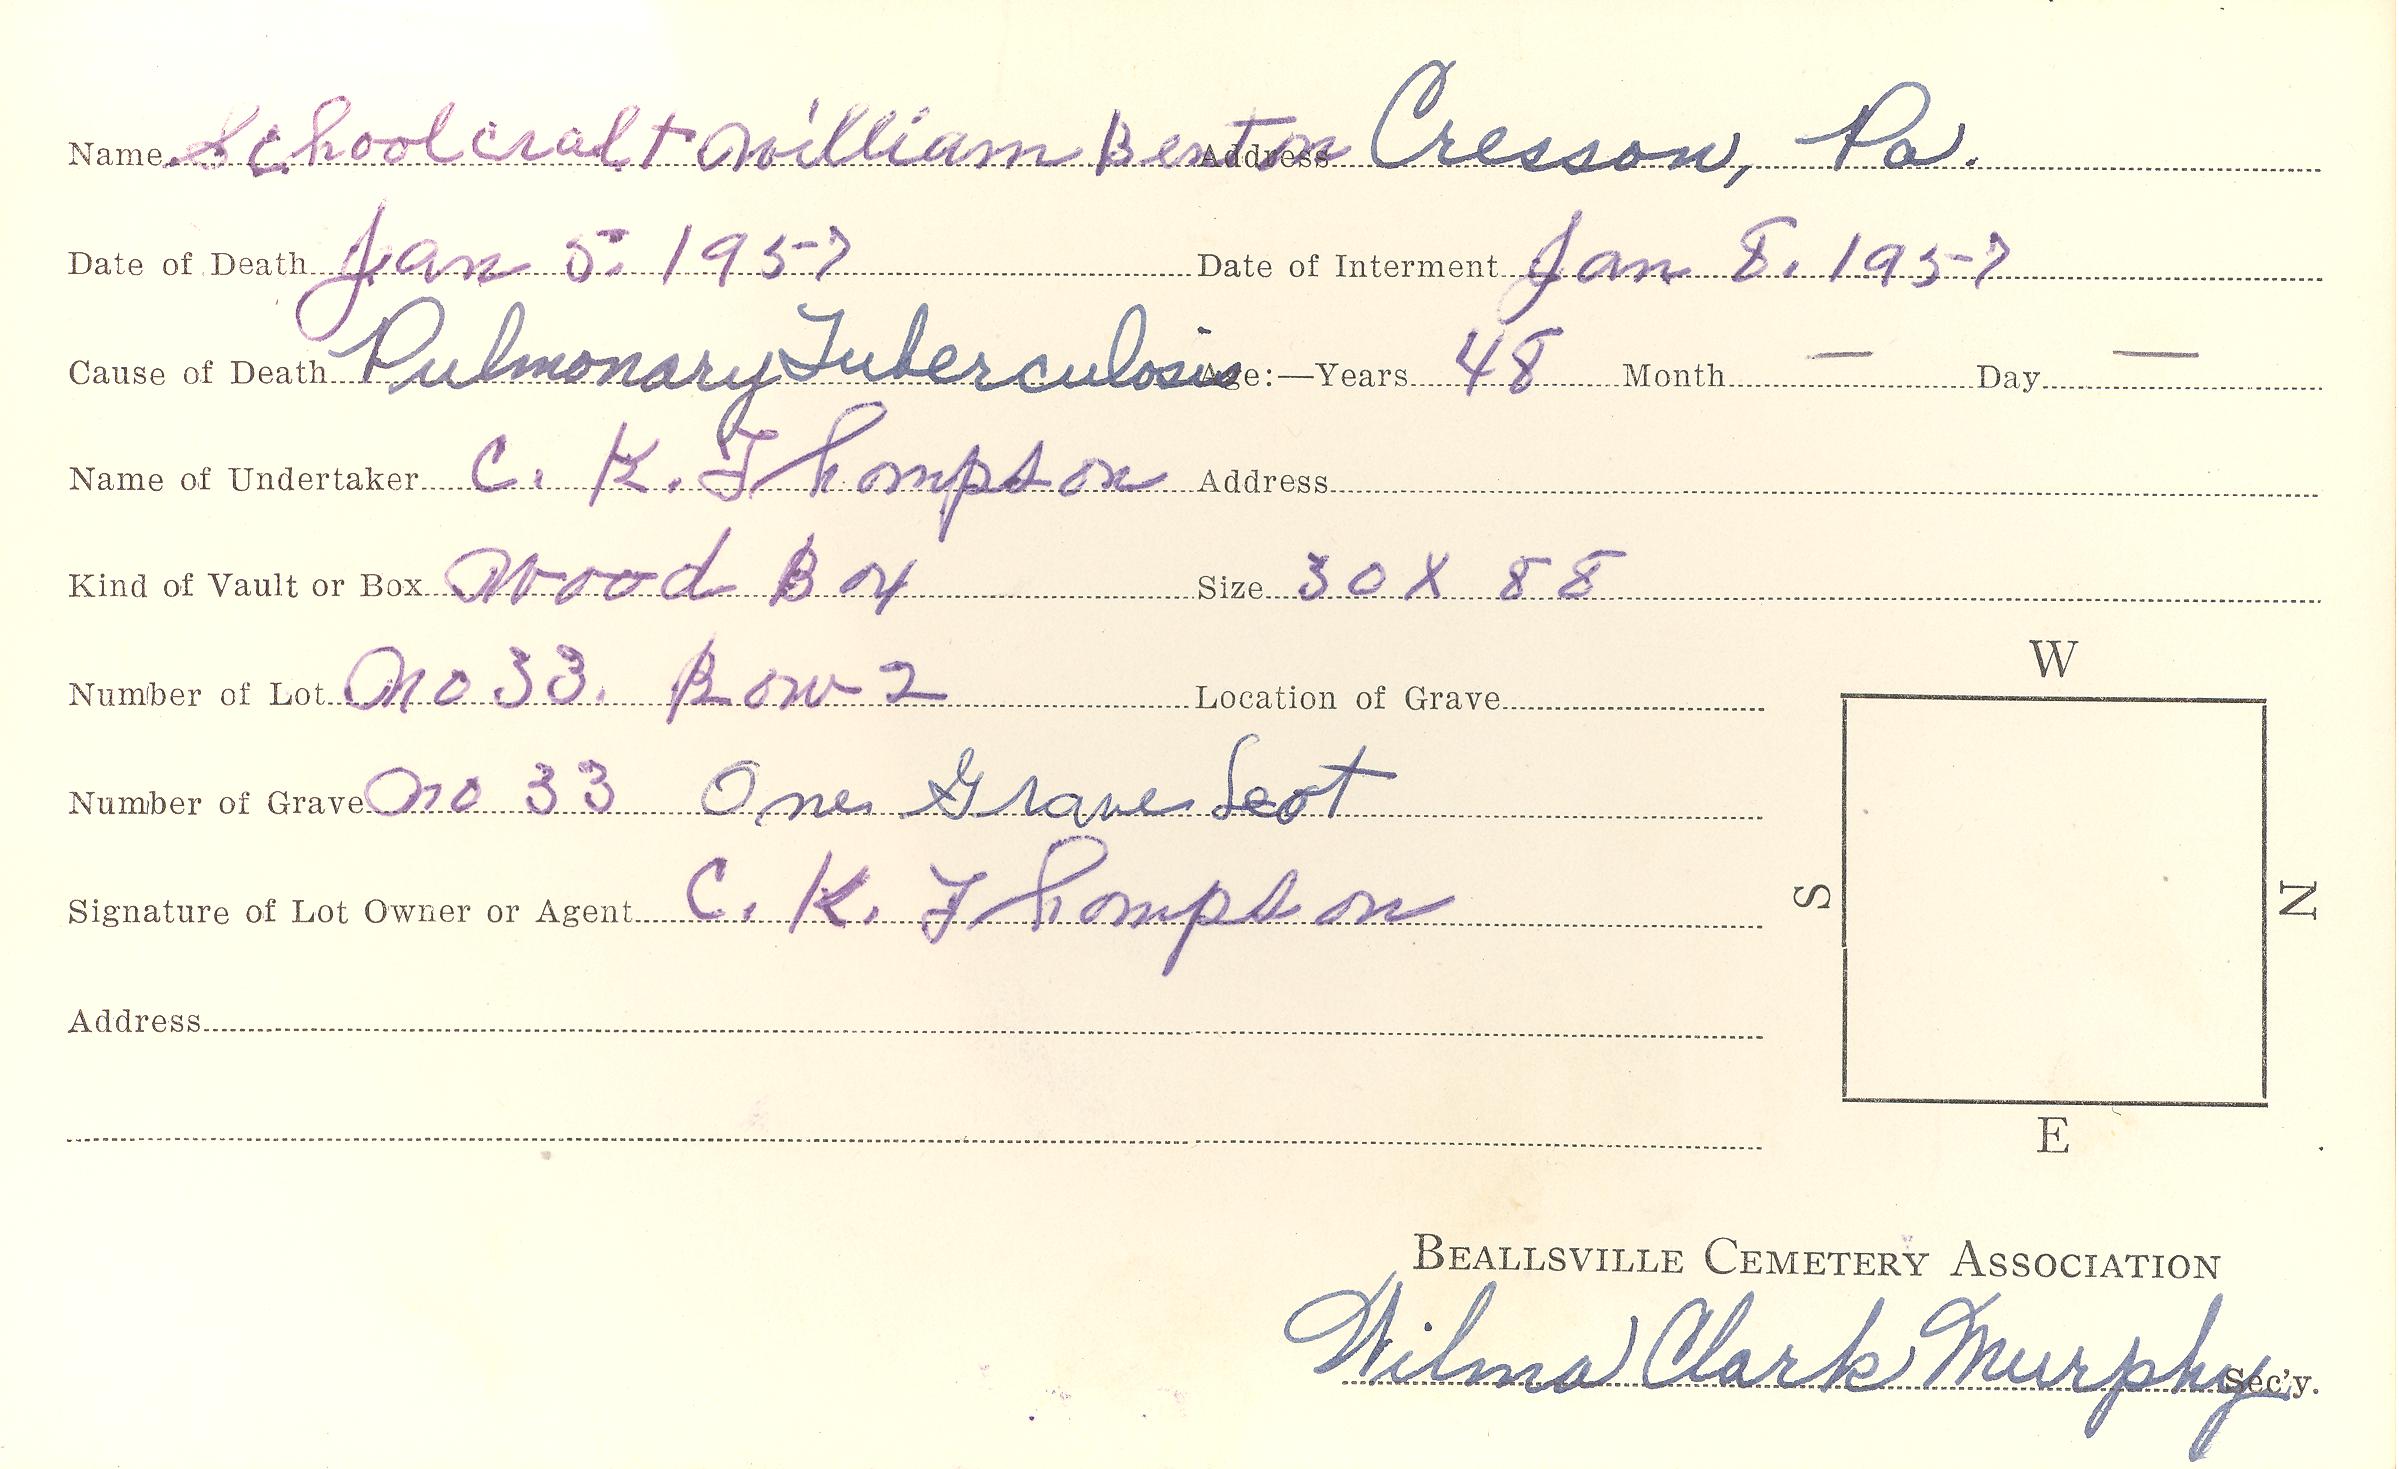 Name Schoolcraft William Benton Address Cresson, Pa.
Date of Death Jan 5. 1957 Date of Interment Jan 8. 1957
Cause of Death Pulmonary Tuberculosis Age:—Years 48 Month — Day —
Name of Undertaker C. K. Thompson Address
Kind of Vault or Box Wood Box Size 30 X 88
Number of Lot No 33. Row 2 Location of Grave
Number of Grave No 33 One Grave Lot
Signature of Lot Owner or Agent C. K. Thompson
Address
W
S
N
E
BEALLSVILLE CEMETERY ASSOCIATION
Wilma Clark Murphy Sec'y.